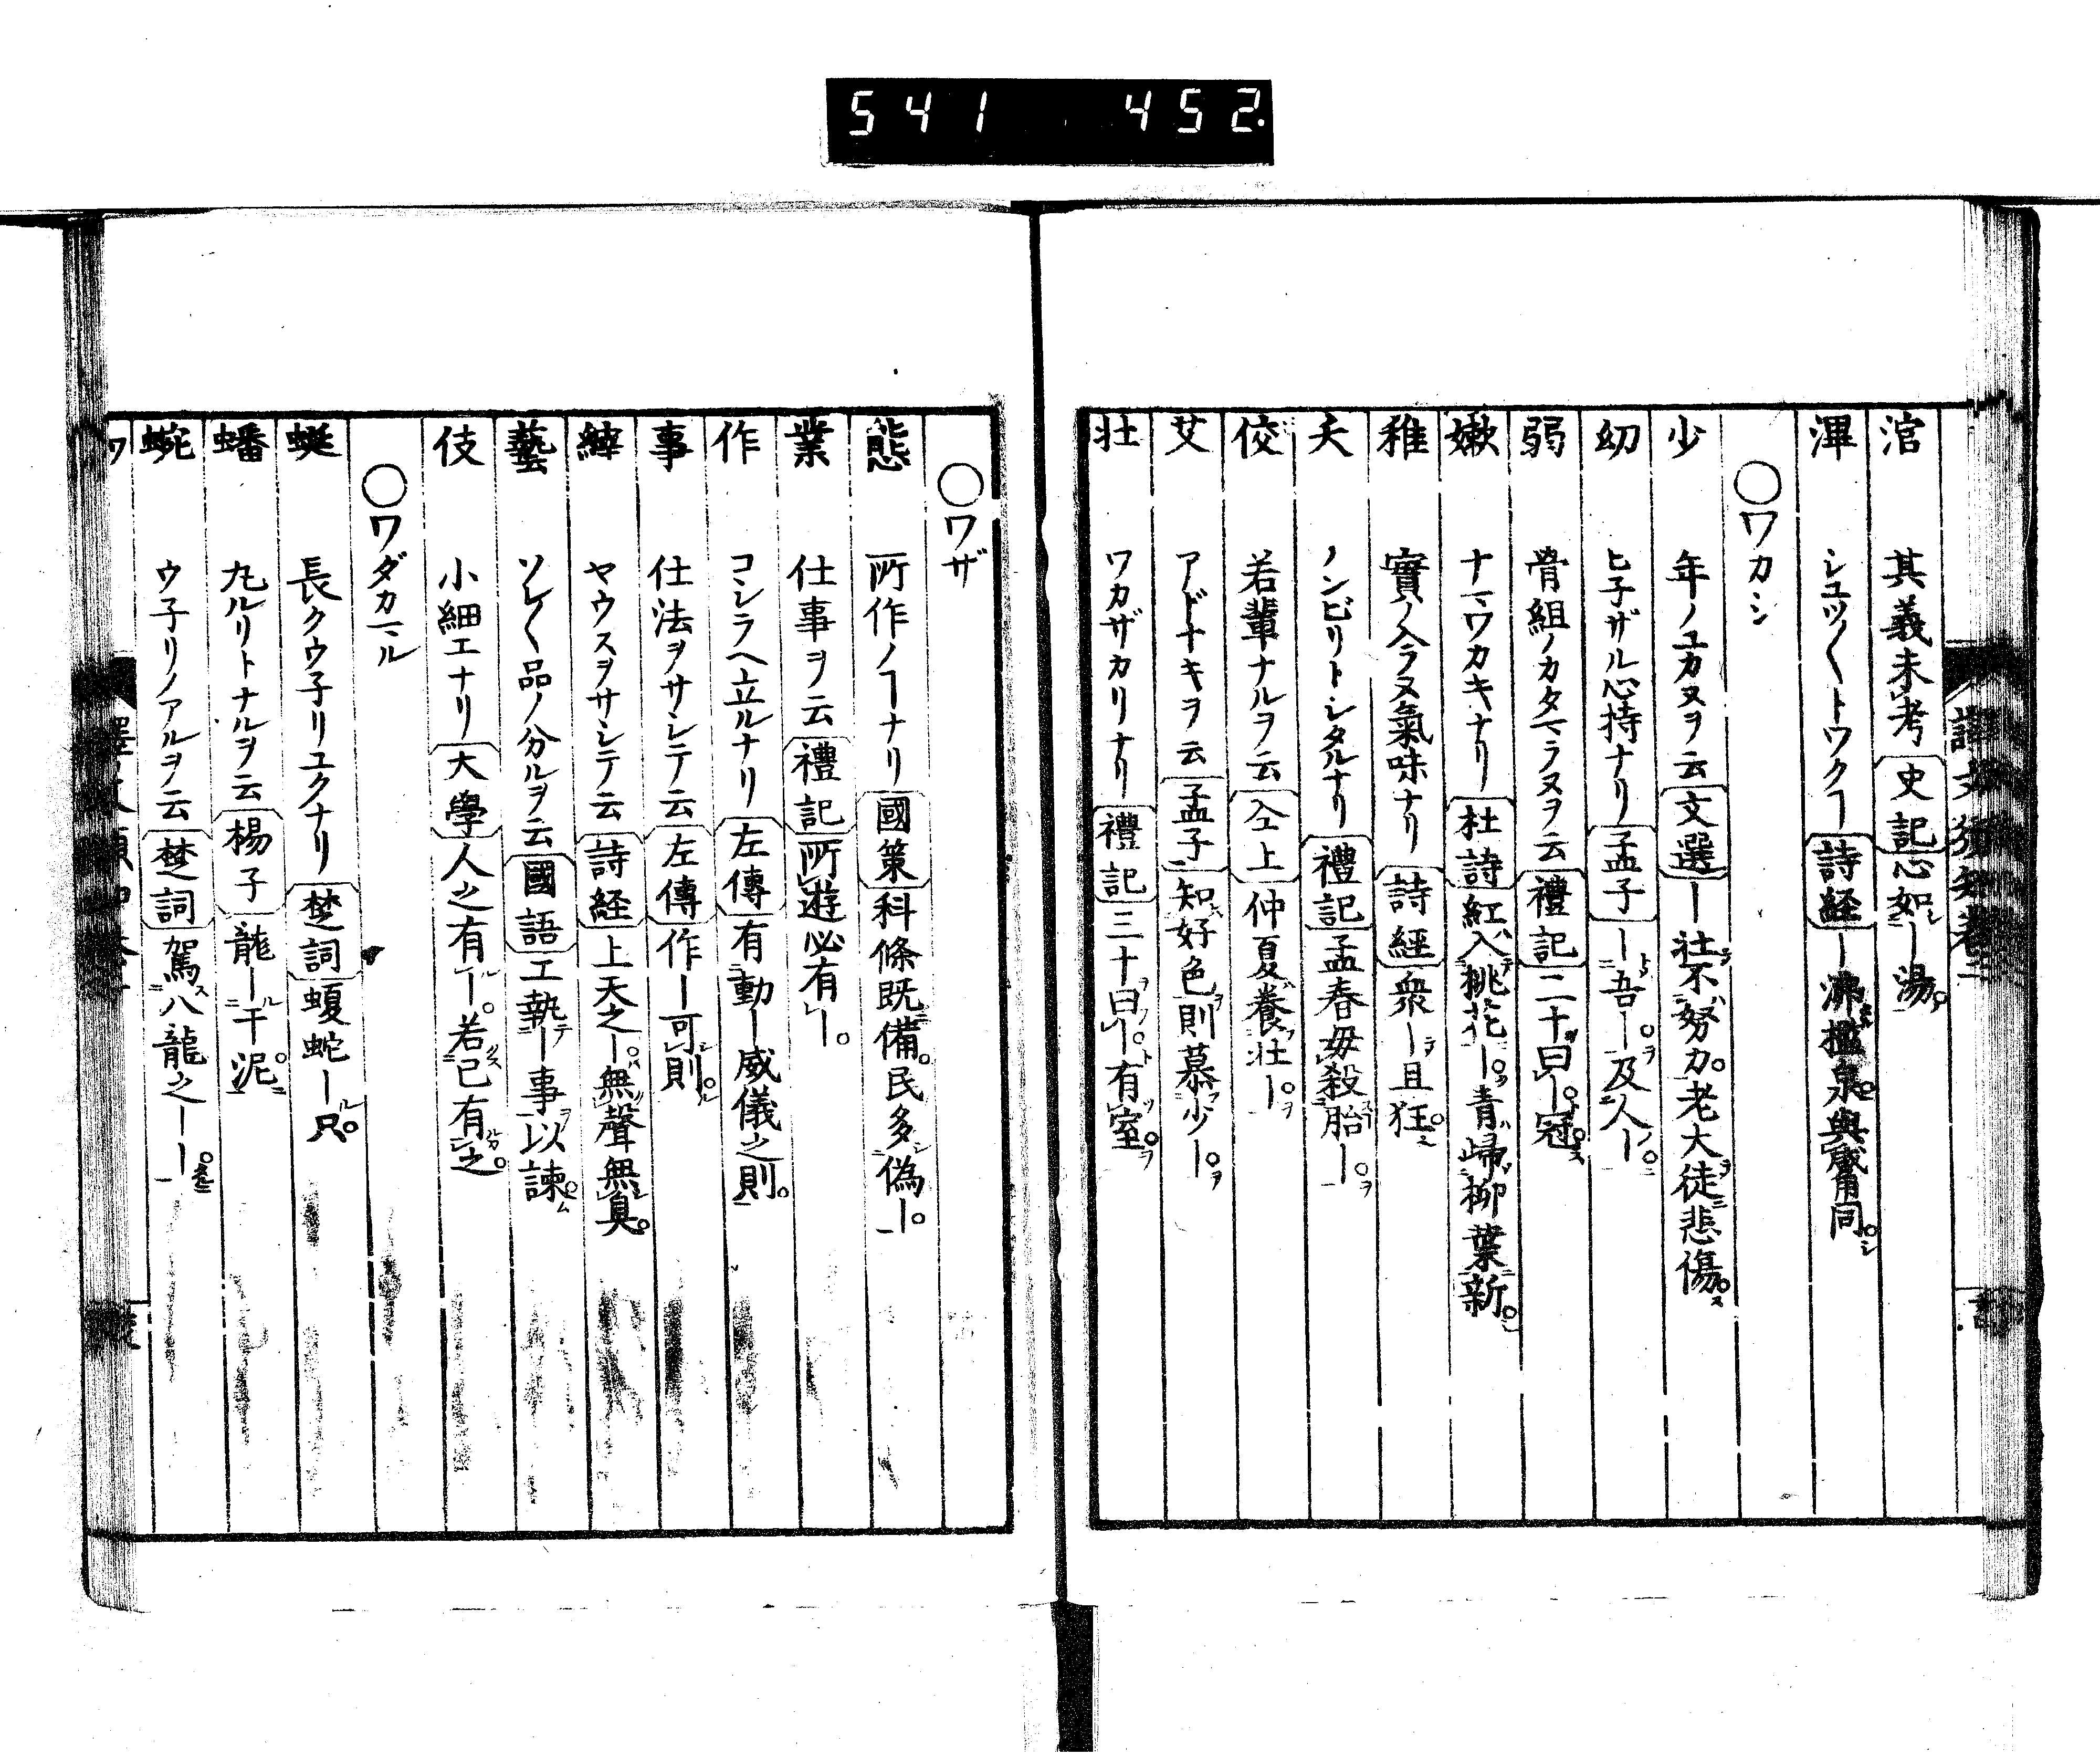 541 452.
涫 其義未考 史記 心如ー湯
渾 シユツ〱トワクヿ 詩経 ー沸檻泉與觱同
○ワカシ
少 年ノユカヌヲ云 文選 ー壮不努力老大徒悲傷
幼 ヒ子ザル心持ナリ 孟子 ー吾ー及人ー
弱 骨組ノカタマラヌヲ云 禮記 二十曰ー冠
嫩 ナマワカキナリ 杜詩 紅入桃花ー青歸柳葉新
稚 實ノ入ラヌ氣味ナリ 詩經 衆ー且狂
夭 ノンビリトシタルナリ 禮記 孟春毋殺胎ー
佼 若輩ナルヲ云 仝上 仲夏養壮ー
艾 アドナキヲ云 孟子 知好色則慕少ー
壮 ワカザカリナリ 禮記 三十曰ー有室
○ワザ
態 所作ノヿナリ 國策 科條既備民多偽ー
業 仕事ヲ云 禮記 所遊必有ー
作 コシラヘ立ルナリ 左傳 有動ー威儀之則
事 仕法ヲサシテ云 左傳 作ー可則
縡 ヤウスヲサシテ云 詩経 上天之ー無聲無臭
藝 ソレ〱品ノ分ルヲ云 國語 工執ー事以諫
伎 小細工ナリ 大學 人之有ー若已有之
○ワダカマル
蜒 長クウ子リユクナリ 楚詞 蝮蛇ー只
蟠 丸ルリトナルヲ云 楊子 龍ー于泥
蜿 ウ子リノアルヲ云 楚詞 駕八龍之ーー
ワ